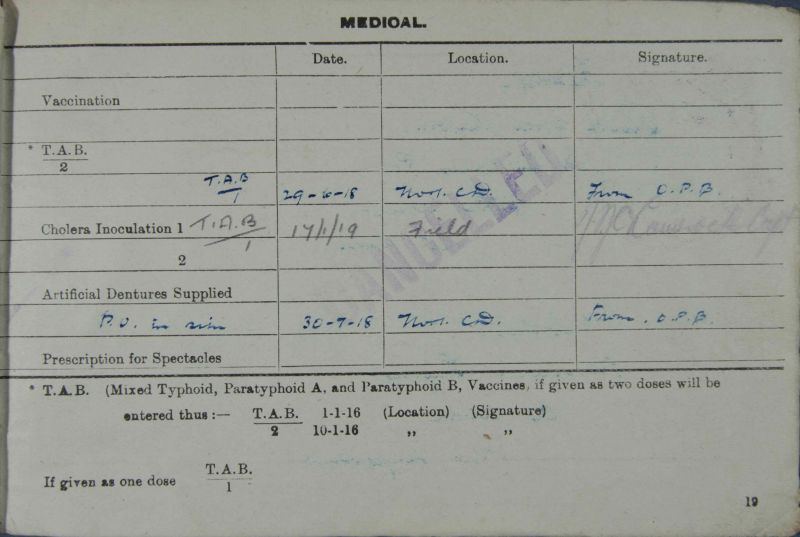 MEDICAL.
Date. Location. Signature.
Vaccination
* T.A.B.
2
T.A.B
1 29-6-18 No 1. C.D. From O.P.B.
Cholera Inoculation 1 T.A.B 17/1/19 Field Capt
1
2
CANCELLED.
Artificial Dentures Supplied
P.U. in situ 30-7-18 No 1. C.D. From. O.P.B.
Prescription for Spectacles
* T.A.B. (Mixed Typhoid, Paratyphoid A, and Paratyphoid B, Vaccines, if given as two doses will be
entered thus :— T.A.B. 1-1-16 (Location) (Signature)
2 10-1-16 ,, ,,
If given as one dose T.A.B.
1
19